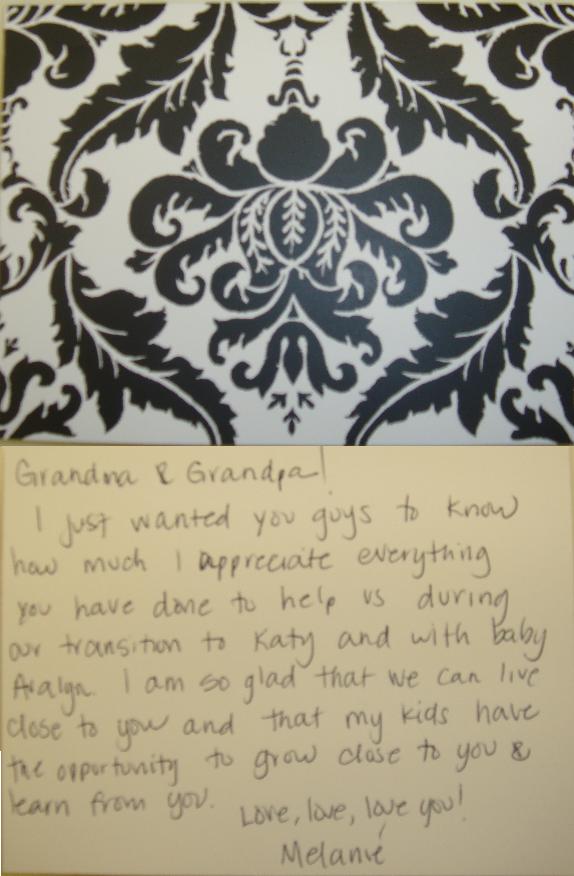 Grandma & Grandpa!
I just wanted you guys to know
how much I appreciate everything
you have done to help us during
our transition to Katy and with baby
I am so glad that we can live
close to you and that my kids have
the opportunity to grow close to you &
learn from you.
Love, love, love you!
Melanie